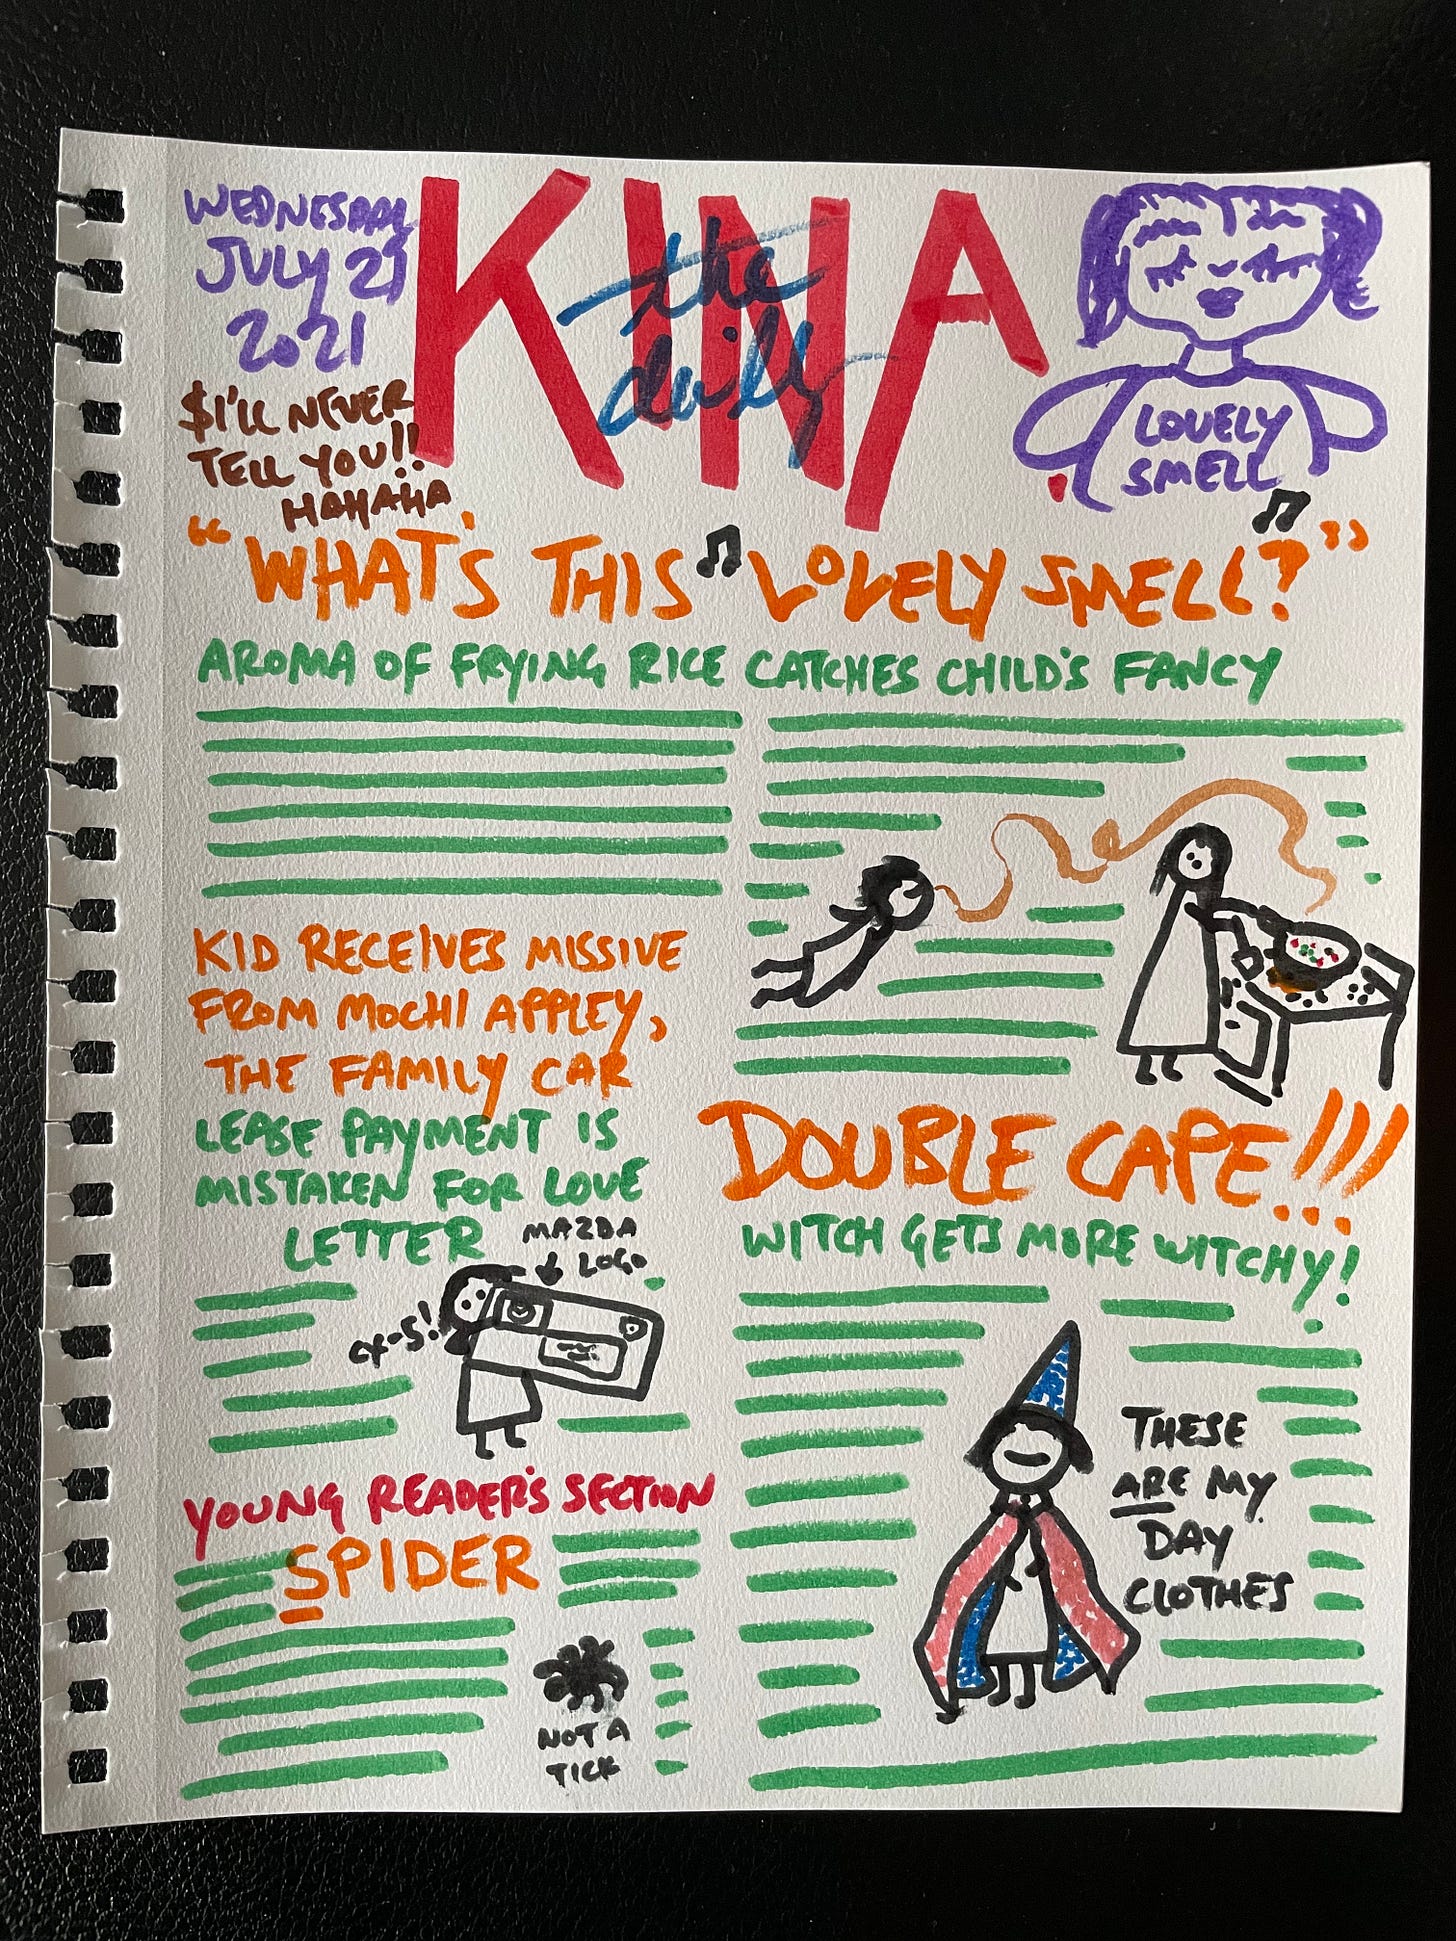 WEDNESDAY
JULY 21
2021
$I'LL NEVER
TELL YOU!!
HAHAHA
KINA
the
daily
LOVELY
SMELL
"WHAT'S THIS ♫ LOVELY SMELL?" ♫
AROMA OF FRYING RICE CATCHES CHILD'S FANCY
KID RECEIVES MISSIVE
FROM MOCHI APPLEY,
THE FAMILY CAR
LEASE PAYMENT IS
MISTAKEN FOR LOVE
LETTER
MAZDA
LOGO
CX-5!
YOUNG READER'S SECTION
SPIDER
NOT A
TICK
DOUBLE CAPE!!!
WITCH GETS MORE WITCHY!
THESE
ARE MY
DAY
CLOTHES